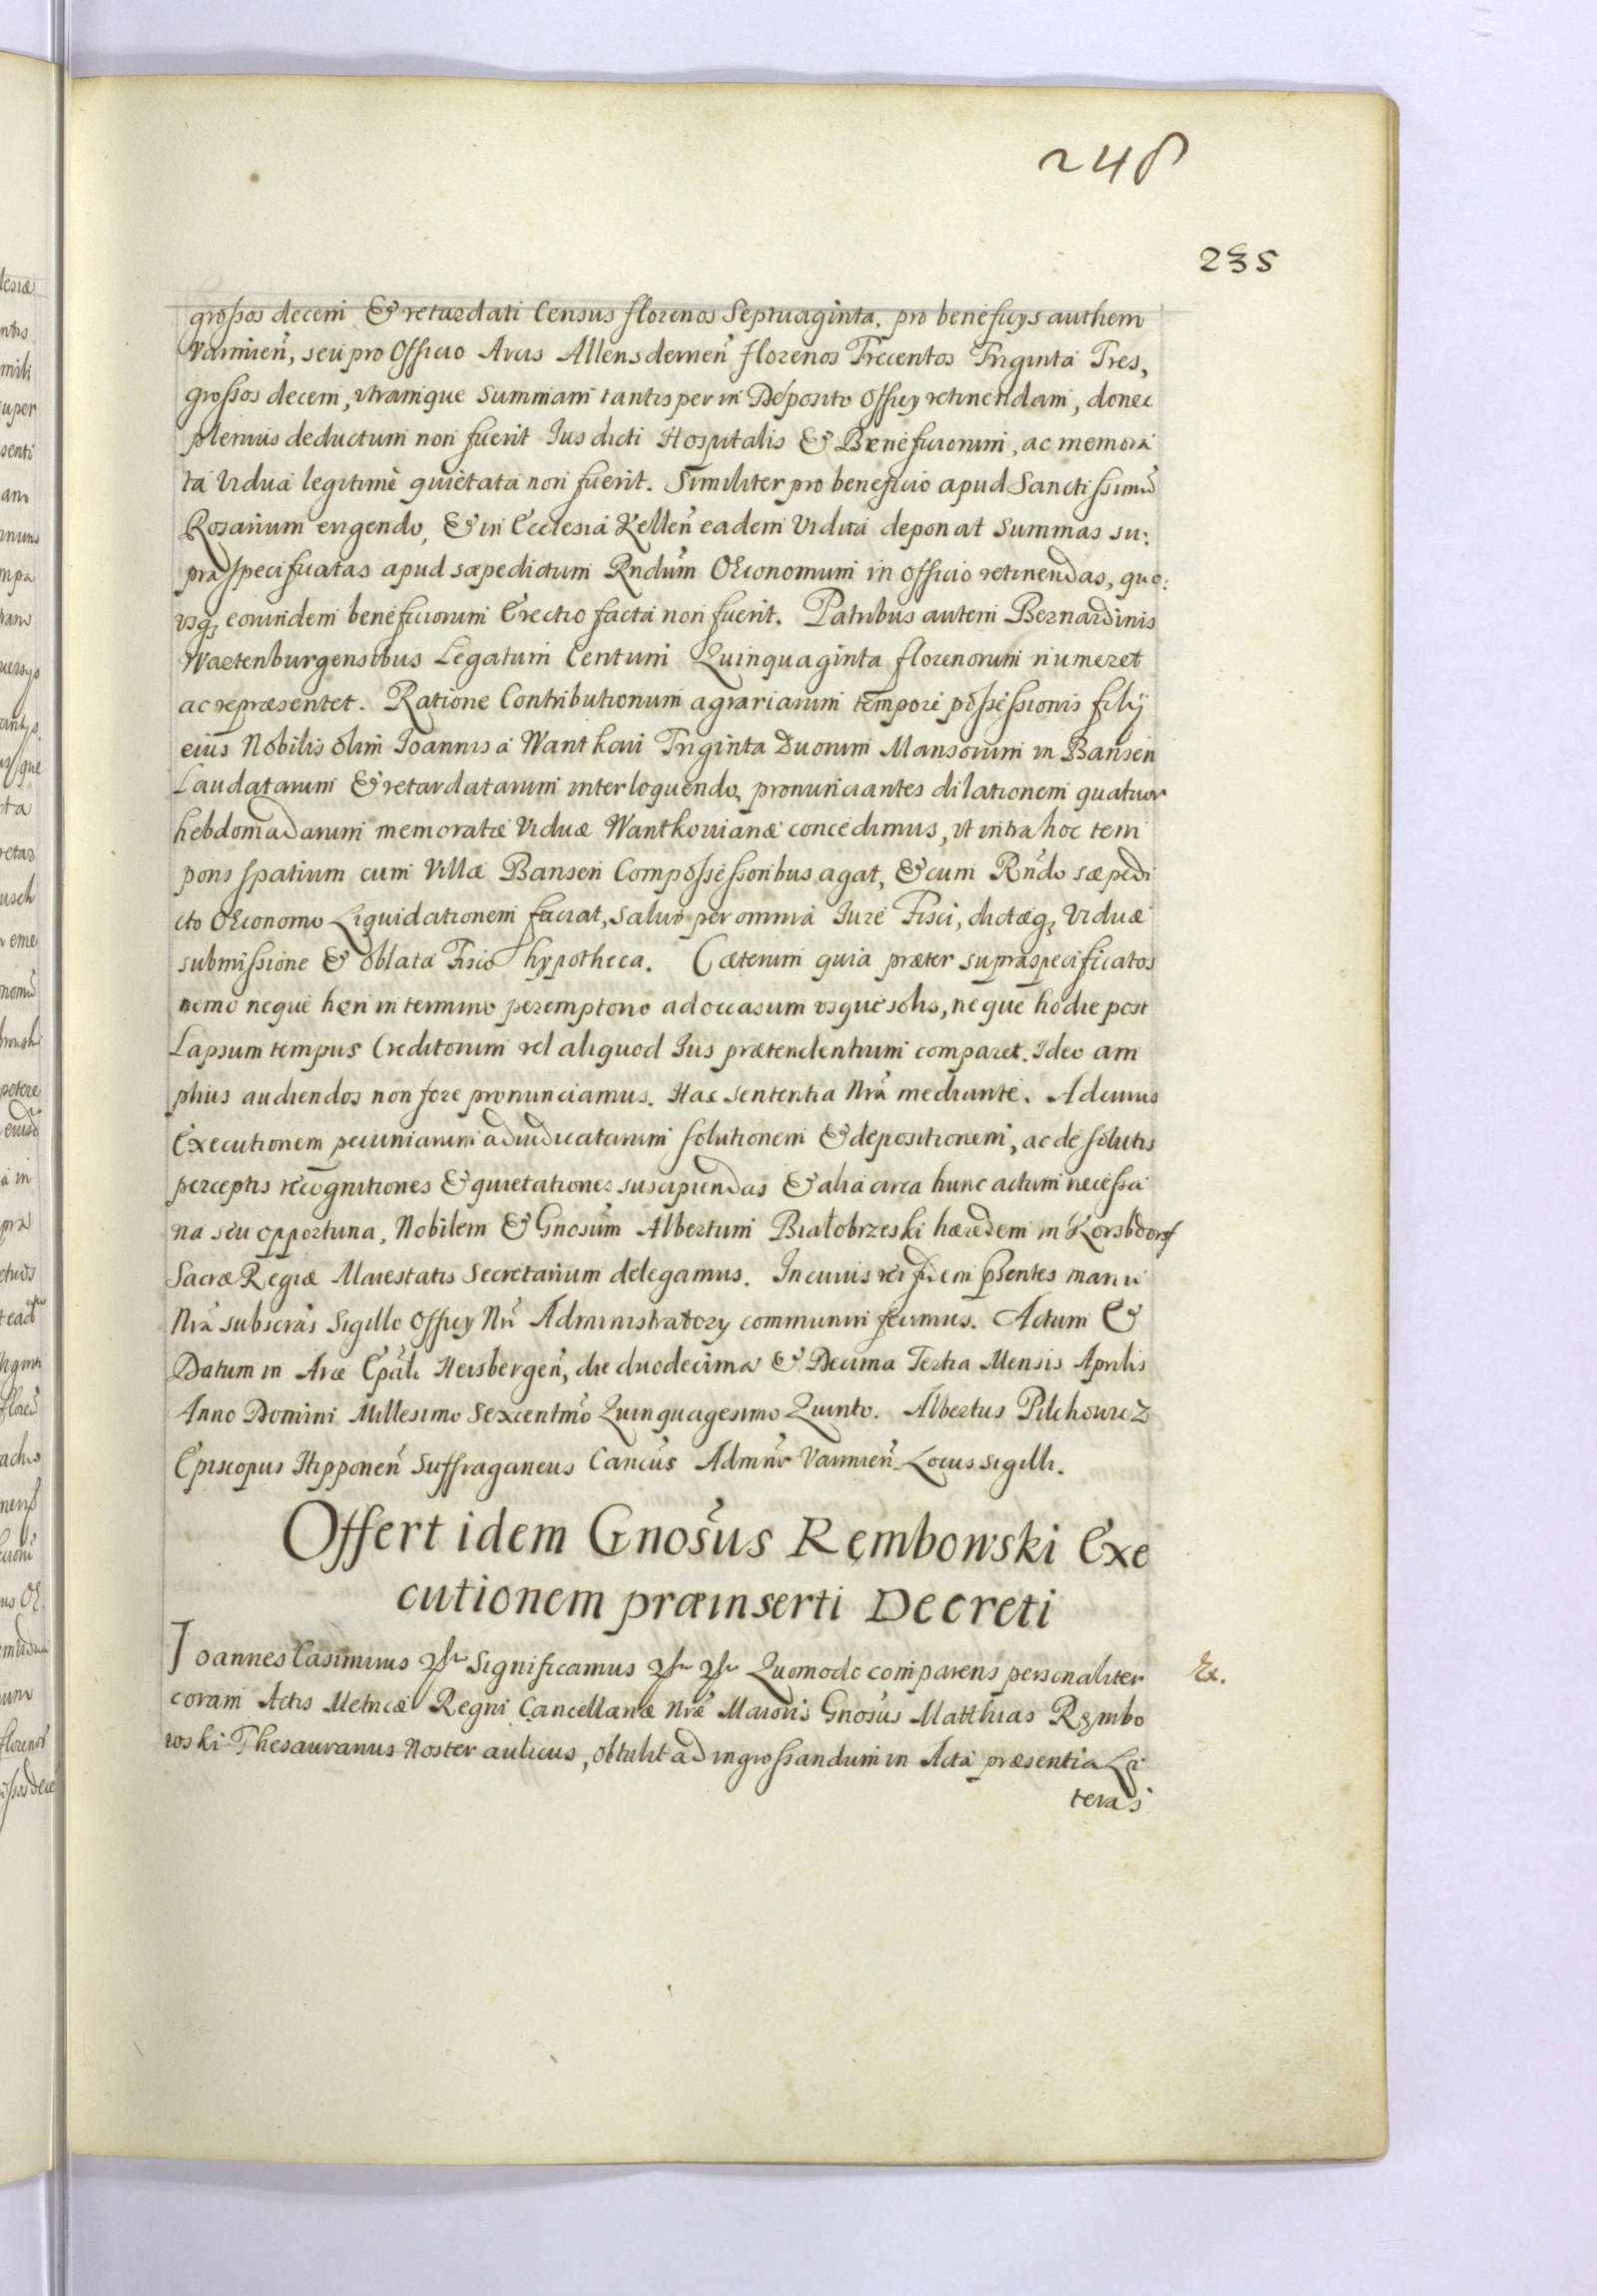 248
235
grossos decem & retardati Census florenos Septuaginta. pro beneficys authem
Varmien̄, seu pro Officio Arcis Allensdemen̄ florenos Trecentos Triginta Tres,
grossos decem, utramque summam tantisper in Deposito Officy retinendam, donec
plenius deductum non fuerit Ius dicti Hospitalis & Beneficiorum, ac memora
ta vidua legitimè quietata non fuerit. Similiter pro beneficio apud Sanctissimū
Rosarium erigendo, & in Ecclesia Kellen̄ eadem Vidua deponat summas su:
pra specificatas apud sæpedictum Rndūm OEconomum in officio retinendas, quo:
usq₃ eorundem beneficiorum Erectio facta non fuerit. Patribus autem Bernardinis
Wartenburgensibus Legatum Centum Quinquaginta florenorum numeret
ac repræsentet. Ratione Contributionum agrariarum tempore possessionis filij
eius Nobilis olim Ioannis à Wantkau Triginta Duorum Mansorum in Bansen
Laudatarum & retardatarum interloquendo, pronunciantes dilationem quatuor
hebdomadarum memoratæ Viduæ Wantkouianæ concedimus, ut intra hoc tem
poris spatium cum Villæ Bansen Compossessoribus agat, & cum Rn̄do sæpedi
cto OEconomo Liquidationem faciat, salvo per omnia Iure Fisci, dictæq₃ Viduæ
submissione & oblata Fisco hypotheca. Cæterum quia præter supraspecificatos
nemo neque heri in termino peremptorio ad occasum usque solis, neque hodie post
Lapsum tempus Creditorum vel aliquod Ius prætendentium comparet. Ideo am
plius audiendos non fore pronunciamus. Hac sententia Nrā mediante. Ad cuius
Executionem pecuniarum adiudicatarum solutionem & depositionem, ac de solutis
perceptis recognitiones & quietationes suscipiendas & alia circa hunc actum necessa
ria seu opportuna, Nobilem & Gnosūm Albertum Białobrzeski hæredem in Korsbdorf
Sacræ Regiæ Maiestatis Secretarium delegamus. In cuius rei fidem pn̄tes manu
Nrā subscras Sigillo Officy Nrī Administratory communiri fecimus. Actum &
Datum in Arce Epāli Heisbergen̄, die duodecima & Decima Tertia Mensis Aprilis
Anno Domini Millesimo Sexcentmō Quinquagesimo Quinto. Albertus Pilchowicz
Episcopus Hipponen̄ Suffraganeus Cancūs Admn̄r Varmien̄. Locus sigilli.
Offert idem Gnosūs Rembowski Exe
cutionem præinserti Decreti
Ioannes Casimirus Significamus Quomodo comparens personaliter
Ex.
coram Actis Metricæ Regni Cancellariæ Nrǣ Maioris Gnosūs Matthias Rembo
wski Thesaurarius Noster aulicus, obtulit ad ingrossandum in Acta præsentia Li
teras